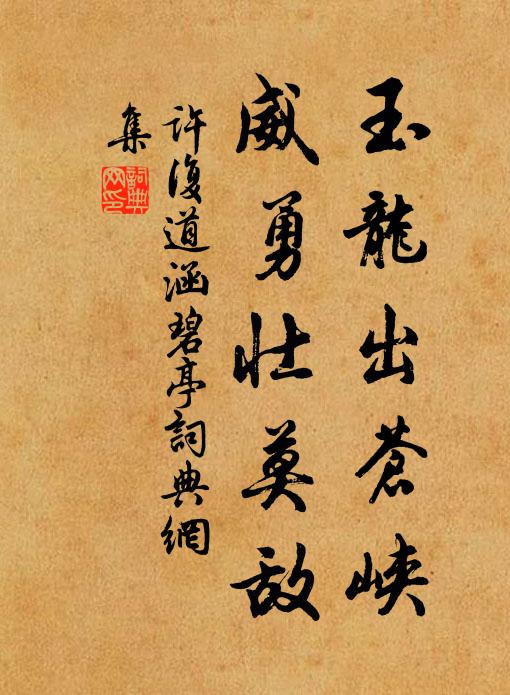 玉龍出蒼峽
威勇壯莫敵
許復道涵碧亭詞典網
集
詞典
网印